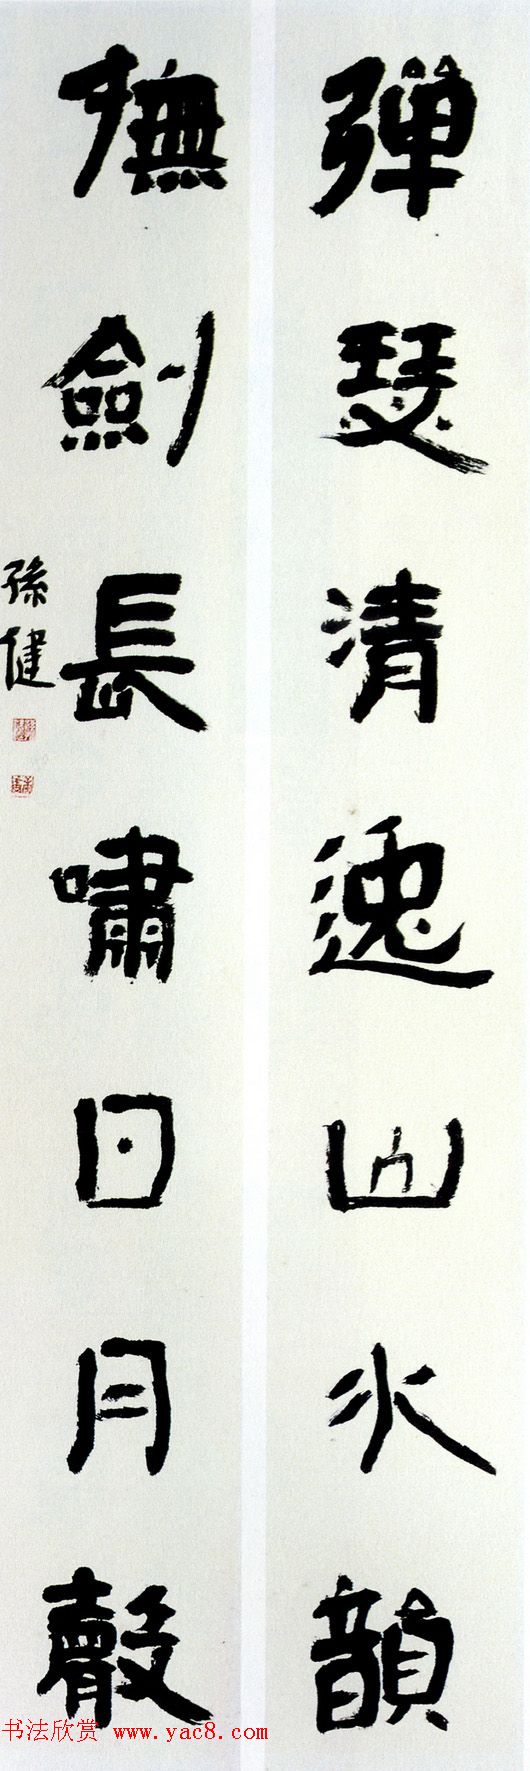 彈瑟清逸山水韻
撫劍長嘯日月聲
孫健
书法欣赏 www.yac8.com